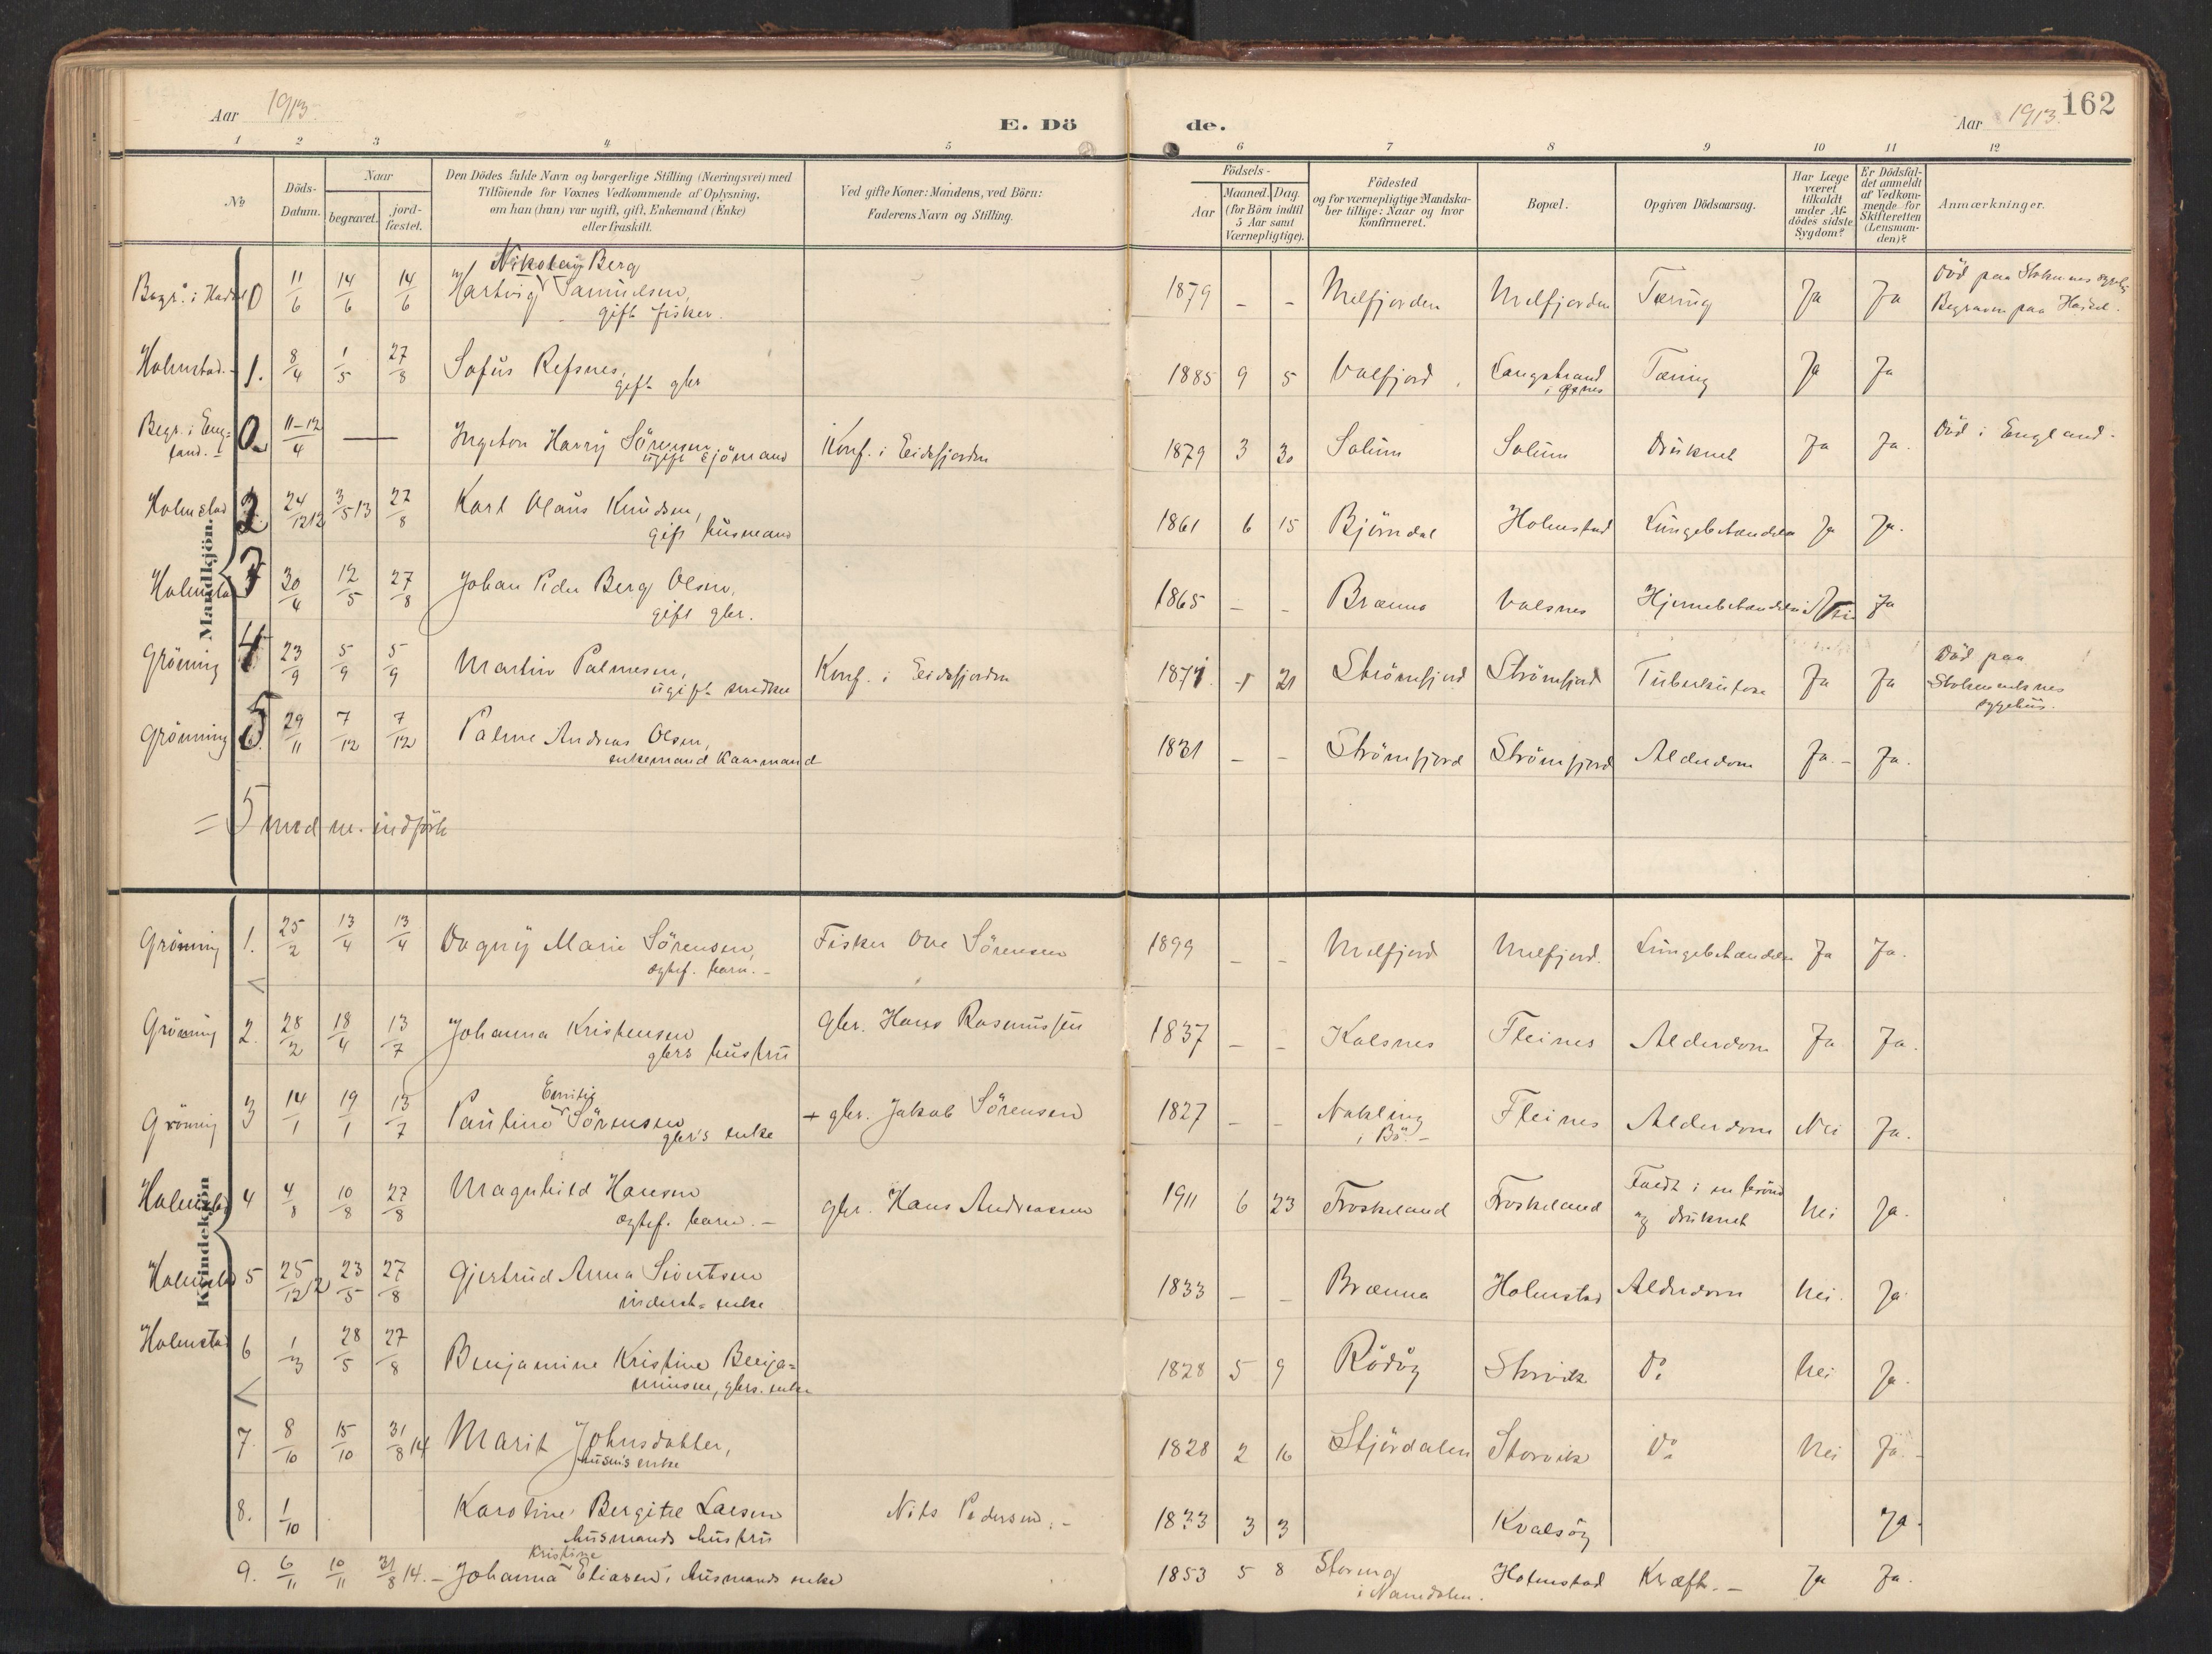 Aar 1913. E. Döde. Aar 1913. 162
1 2 3 4 5 6 7 8 9 10 11 12
No
Döds-Datum.
Naar
begravet.
jord-fæstet.
Den Dödes fulde Navn og borgerlige Stilling (Næringsvei) med
Tilföiende for Voxnes Vedkommende af Oplysning,
om han (hun) var ugift, gift, Enkemand (Enke)
eller fraskilt.
Ved gifte Koner: Mandens, ved Börn:
Faderens Navn og Stilling.
Födsels-
Aar
Maaned. Dag.
(for Börn indtil
5 Aar samt
Værnepligtige).
Födested
og for værnepligtige Mandska-
ber tillige: Naar og hvor
Konfirmeret.
Bopæl.
Opgiven Dödsaarsag.
Har Læge
været
tilkaldt
under Af-
dödes sidste
Sygdom?
Er Dödsfal-
det anmeldt
af Vedkom-
mende for
Skifteretten
(Lensman-
den)?
Anmærkninger.
Mandkjön.
Nikolai Berg
Begr. i Hadsel 0 11/6 14/6 14/6 Hartvig Samuelsen, 1879 - - Melfjorden Melfjorden Tæring Ja Ja Död paa Stokmarknes sygeh.
gift fisker. Begraven paa Hadsel.
Holmstad. 1. 8/4 1/5 27/8 Sofus Refsnes, 1885 9 5 Valfjord Langstrand Tæring Ja Ja
gift gbr i Øxnes
Begr. i Eng- 0 11-12/4 — Ingeton Harry Sörensen Konf. i Eidsfjorden 1879 3 30 Solum Solum Druknet Ja Ja. Död i England.
land. ugift Sjömand
Holmstad 2 24/12 12 3/5 13 27/8 Karl Olaus Knudsen, 1861 6 15 Björndal Holmstad Lungebetændelse Ja Ja.
gift husmand
Holmstad 3 30/4 12/5 27/8 Johan Peder Berg Olsen, 1865 - - Brænna Valsnes Hjernebetændelse Nei Ja
gift gbr.
Grönning 4 23/9 5/9 5/9 Martin Palmesen, Konf. i Eidsfjorden 1871 1 21 Strömfjord Strömfjord Tuberkulose Ja Ja Död paa
ugift snedker Stokmarknes
sygehus.
Grönning 5 29/11 7/12 7/12 Palme Andreas Olsen, 1831 - - Strömfjord Strömfjord Alderdom Ja. - Ja.
enkemand Kaarmand
= 5 mnd m. indförte
Kvindekjön
Grönning 1. 25/2 13/4 13/4 Dagny Marie Sörensen, Fisker Ove Sörensen 1899 - - Melfjord Melfjord. Lungebetændelse Ja Ja.
ægtef. barn. -
Grönning 2. 28/2 18/4 13/7 Johanna Kristensen gbr. Hans Rasmussen 1837 - - Kalsnes Fleines Alderdom Ja Ja.
gbrs hustru
Emilie
Grönning 3 14/1 19/1 13/7 Pauline Sörensen + gbr. Jakob Sörensen 1827 - - Nykling Fleines Alderdom Nei Ja.
gbr's enke i Bö. -
Holmstad 4 4/8 10/8 27/8 Magnhild Hansen gbr. Hans Andreassen 1911 6 23 Froskeland Froskeland Faldt i en brönd Nei Ja.
ægtef. barn. - og druknet
Holmstad 5 25/12 12 23/5 27/8 Gjertrud Anna Sivertsen 1833 - - Brænna Holmstad Alderdom Nei. Ja
inderst-enke
Holmstad 6 1/3 28/5 27/8 Benjamine Kristine Benja- 1828 5 9 Rödöy Storvik Do Nei Ja.
minsen, gbrs. enke
7. 8/10 15/10 31/8 14 Marit Johnsdatter, 1828 2 16 Stjördalen Storvik Do Nei Ja. -
husm's enke
8. 1/10 Karoline Bergitte Larsen Nils Pedersen. - 1833 3 3 Kvalsöy Ja.
husmands hustru
Kristine
9. 6/11 10/11 31/8 14. - Johanna Eliasen, husmands enke 1853 5 8 Holmstad Kræft. - Ja Ja.
i Namdalen.